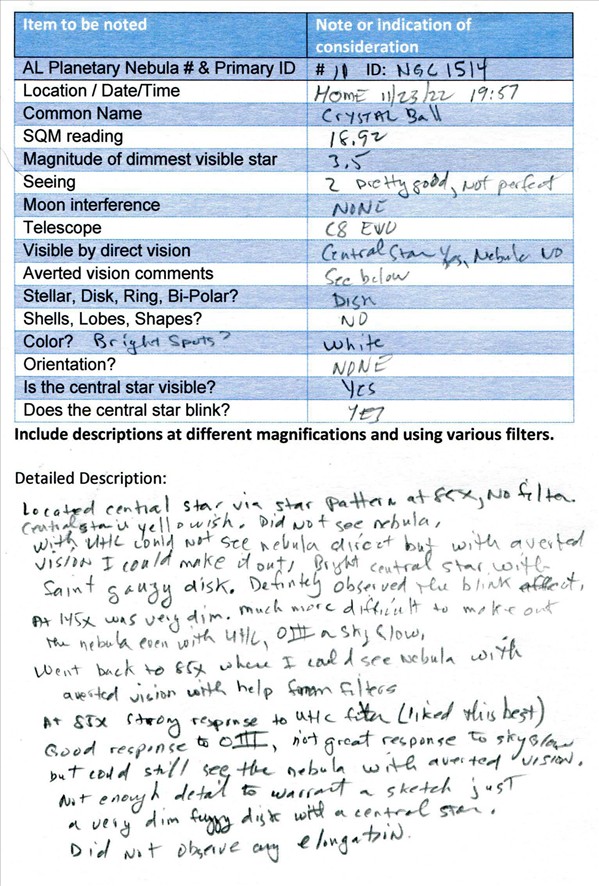 Item to be noted Note or indication of consideration
AL Planetary Nebula # & Primary ID # 11 ID: NGC 1514
Location / Date/Time HOME 11/23/22 19:57
Common Name CRYSTAL Ball
SQM reading 18.92
Magnitude of dimmest visible star 3.5
Seeing 2 pretty good, Not perfect
Moon interference NONE
Telescope C8 EVO
Visible by direct vision Central Star Yes, Nebula NO
Averted vision comments See below
Stellar, Disk, Ring, Bi-Polar? Disk
Shells, Lobes, Shapes? NO
Color? Bright Spots? White
Orientation? NONE
Is the central star visible? YES
Does the central star blink? YES
Include descriptions at different magnifications and using various filters.
Detailed Description:
Located central star via star pattern at 88X, No filter.
Central star is yellowish. Did Not see nebula,
With UHC could Not see nebula direct but with averted
vision I could make it out, Bright central star with
faint gauzy disk. Definitely observed the blink effect,
At 145x was very dim. much more difficult to make out
the nebula even with UHC, OIII or Sky Glow,
Went back to 88x where I could see Nebula with
averted vision with help from filters
At 88x strong response to UHC filter (liked this best)
Good response to OIII, not great response to skyglow
but could still see the nebula with averted vision.
Not enough detail to warrant a sketch just
a very dim fuzzy disk with a central star.
Did Not observe any elongation.